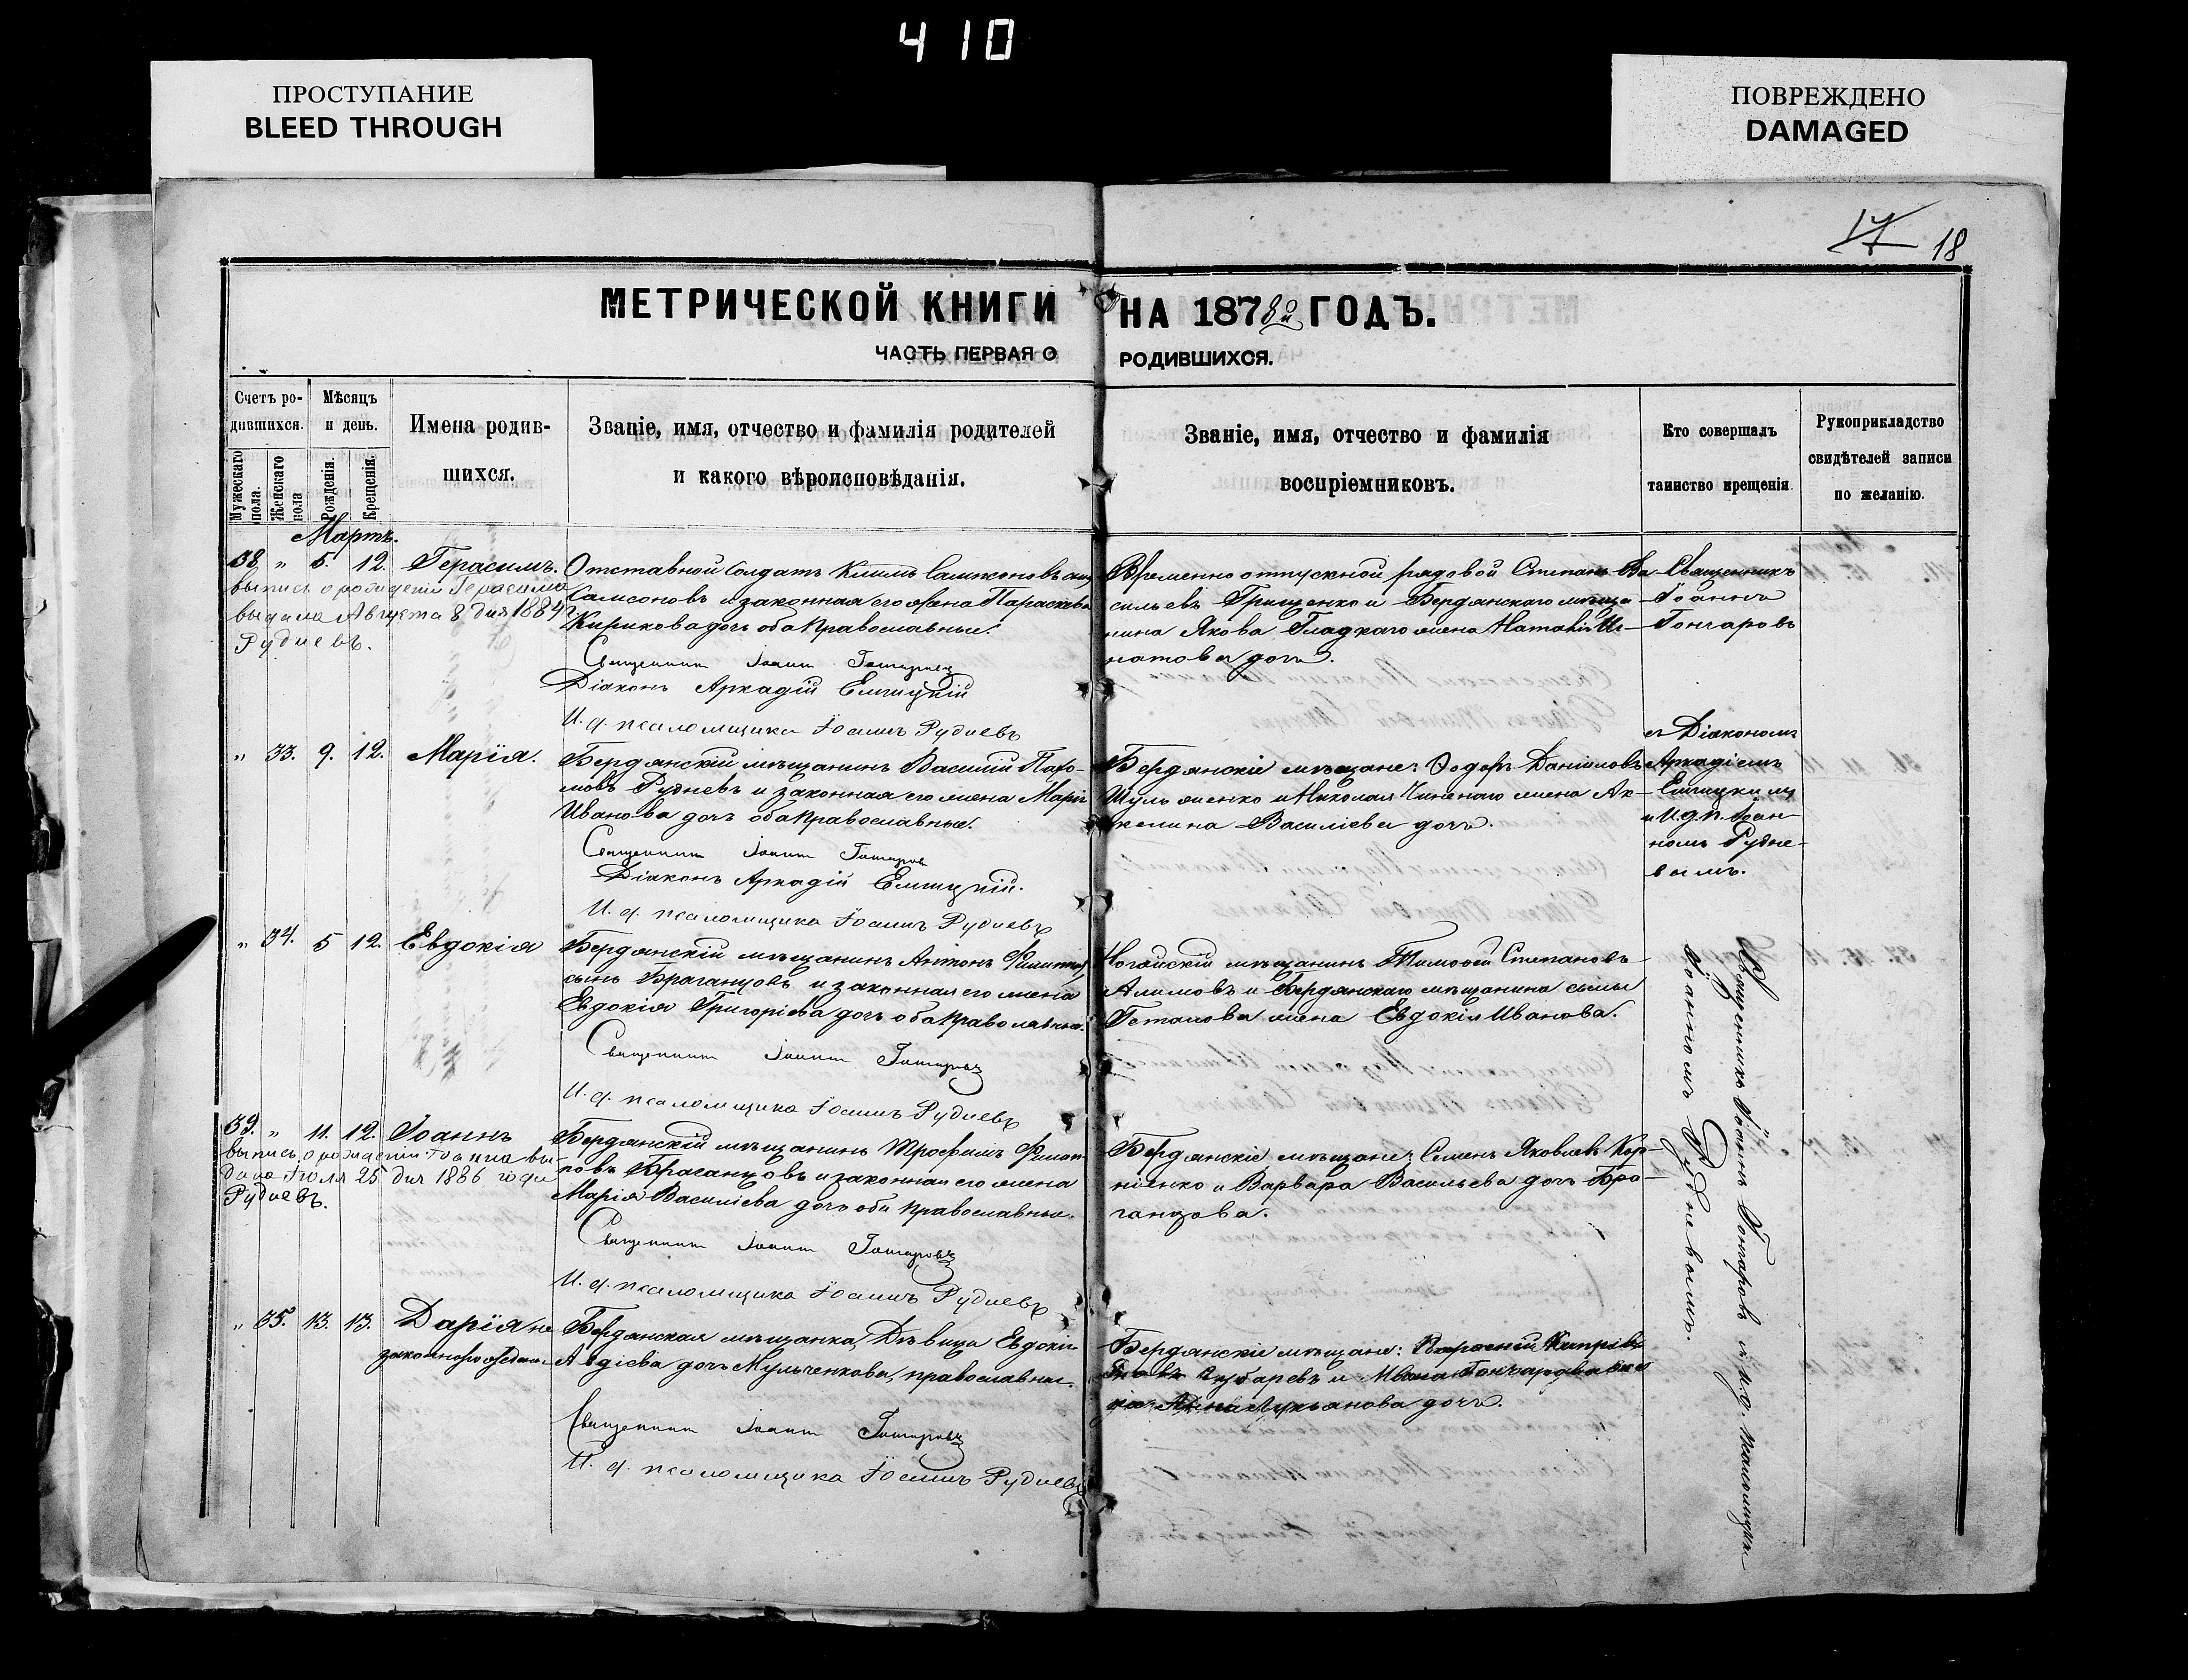 410
ПРОСТУПАНИЕ
BLEED THROUGH
ПОВРЕЖДЕНО
DAMAGED
17 18
МЕТРИЧЕСКОЙ КНИГИ НА 1878й ГОДЪ.
ЧАСТЬ ПЕРВАЯ О РОДИВШИХСЯ.
Счетъ ро-
дившихся.
Мужескаго пола.
Женскаго пола
Мѣсяцъ
и день.
Рожденія.
Крещенія.
Имена родив-
шихся.
Званіе, имя, отчество и фамилія родителей
и какого вѣроисповѣданія.
Званіе, имя, отчество и фамилія
воспріемниковъ.
Кто совершалъ
таинство крещенія
Рукоприкладство
свидѣтелей записи
по желанію.
Мартъ.
38 " 5. 12. Герасимъ.
выпись о рождении Герасима
выдана Августа 8 дня 1884
Рудневъ.
Отставной Солдатъ Климъ Самсоновъ
Самсоновъ и законная его жена Параскева
Кирикова дочь оба Православные.
Священникъ Іоаннъ Гончаровъ
Діаконъ Аркадій Елчицкій
И. д. псаломщика Іоаннъ Рудневъ
Временно отпускной рядовой Степанъ Ва-
сильевъ Грищенко и Бердянскаго мѣща-
нина Якова Гладкаго жена Наталія Иг-
натова дочь.
Священникъ
Іоаннъ
Гончаровъ
" 33. 9. 12. Марія.
Бердянскій мѣщанинъ Василій Пахо-
мовъ Рудневъ и законная его жена Марія
Иванова дочь оба Православные.
Священникъ Іоаннъ Гончаровъ
Діаконъ Аркадій Елчицкій.
И. д. псаломщика Іоаннъ Рудневъ
Бердянскіе мѣщане: Ѳедоръ Даніиловъ
Шульженко и Николая жена Ак-
килина Василіева дочь.
съ Діакономъ
Аркадіемъ
Елчицкимъ
и И.д.п. Іоан-
номъ Рудне-
вымъ.
" 34. 5 12. Евдокія
Бердянскій мѣщанинъ Антонъ Филиппов
сынъ Браганцовъ и законная его жена
Евдокія Григоріева дочь оба Православные.
Священникъ Іоаннъ Гончаровъ
И. д. псаломщика Іоаннъ Рудневъ
Ногайскій мѣщанинъ Тимоѳей Степановъ
Алимовъ и Бердянскаго мѣщанина
жена Евдокія Иванова.
Священникъ Іоаннъ Гончаровъ и И.д. псаломщика
Іоанномъ Рудневымъ.
39. " 11. 12. Іоаннъ
выпись о рождении Іоанна вы-
дана Іюля 25 дня 1886 года
Рудневъ.
Бердянскій мѣщанинъ Трофимъ Филип-
повъ Браганцовъ и законная его жена
Марія Василіева дочь оба Православные.
Священникъ Іоаннъ Гончаровъ
И. д. псаломщика Іоаннъ Рудневъ
Бердянскіе мѣщане: Семенъ Яковлевъ Кор-
ніенко и Варвара Васильева дочь Бра-
ганцова.
" 35. 13. 13. Дарія не
законнорожден.
Бердянская мѣщанка, Дѣвица Евдокія
Авдіева дочь Мульченкова, православная.
Священникъ Іоаннъ Гончаровъ
И. д. псаломщика Іоаннъ Рудневъ
Бердянскіе мѣщане:
и Ивана Гончарова
Лукьянова дочь.